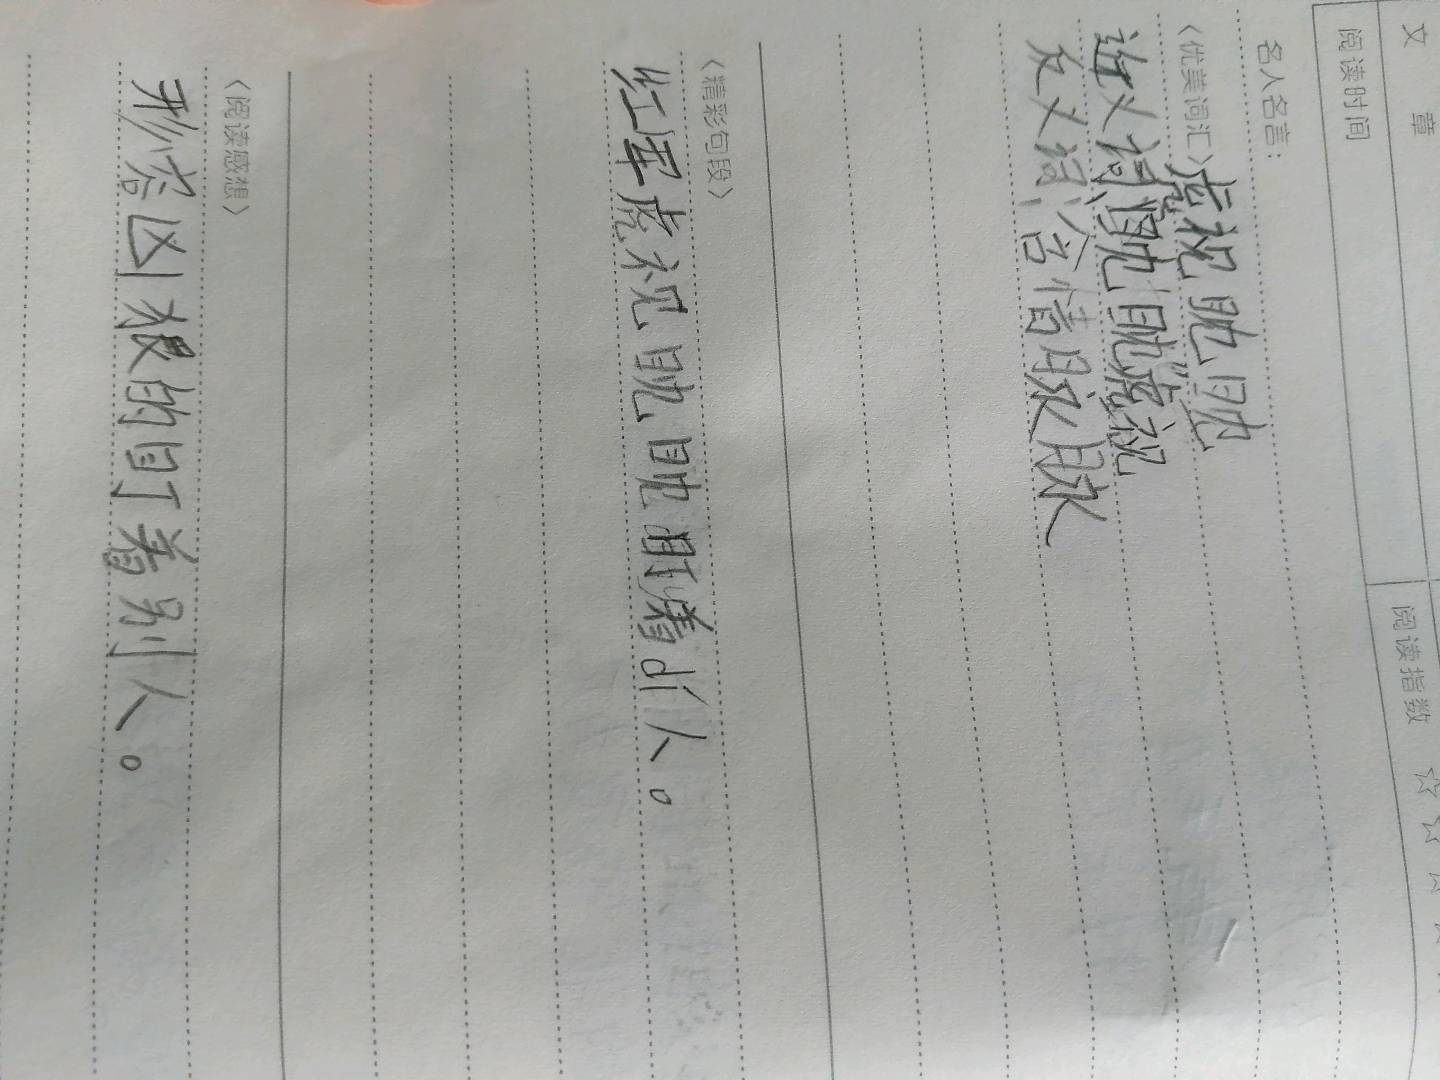 文 章
阅读指数 ☆☆☆☆
阅读时间
名人名言：
〈优美词汇〉虎视眈眈
近义词：眈眈虎视
反义词：含情脉脉
〈精彩句段〉
红军虎视眈眈盯着敌人。
〈阅读感想〉
形容凶狠的盯着别人。